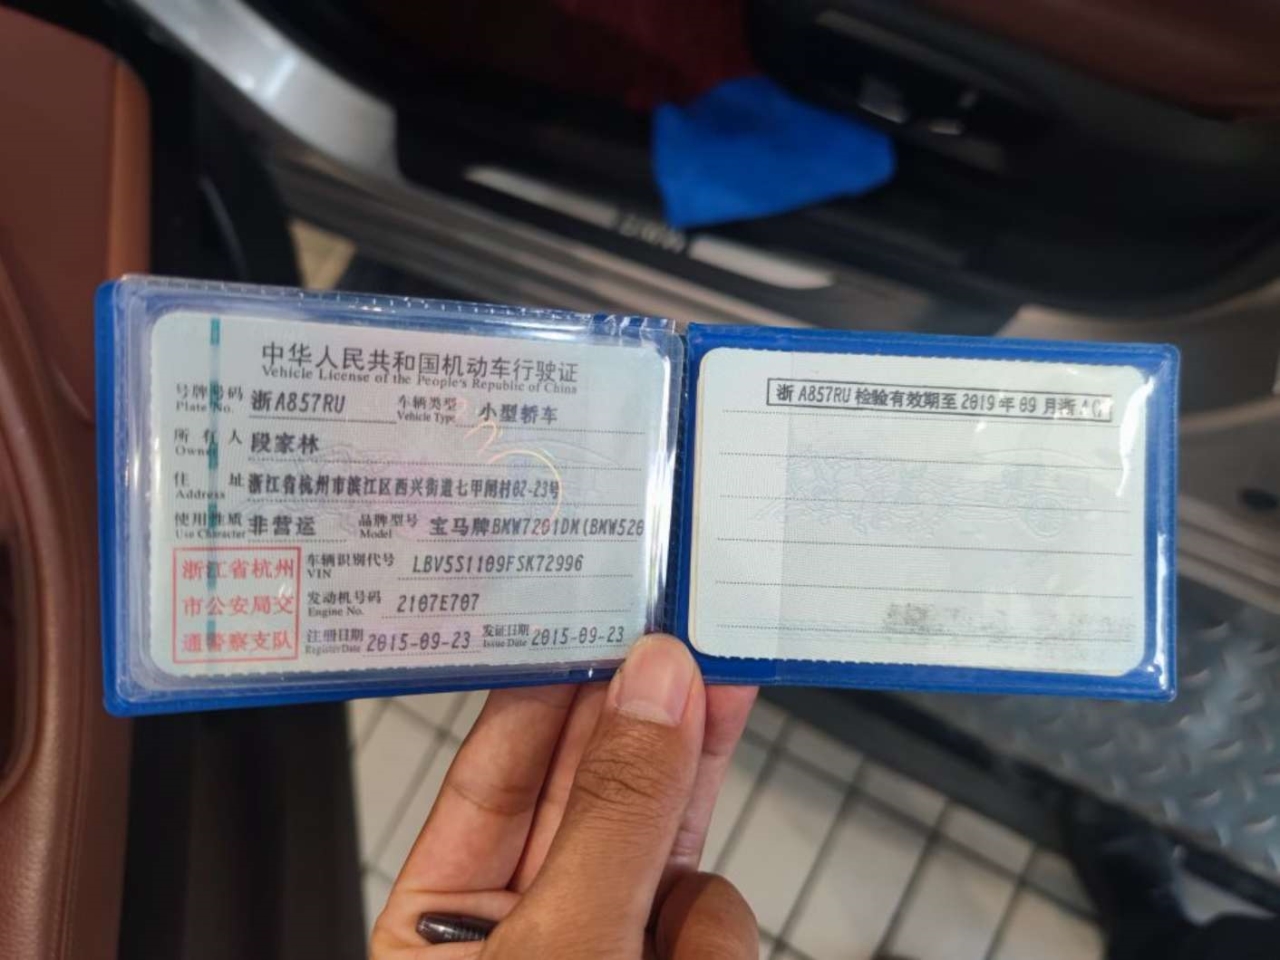 中华人民共和国机动车行驶证
Vehicle License of the People's Republic of China
号牌号码 浙A857RU 车辆类型 小型轿车
Plate No. Vehicle Type
所有人 段家林
Owner
住址 浙江省杭州市滨江区西兴街道七甲闸村02-23号
Address
使用性质 非营运 品牌型号 宝马牌BMW7201DM(BMW520
Use Character Model
浙江省杭州
市公安局交
通警察支队
车辆识别代号 LBV5S1109FSK72996
VIN
发动机号码 2107E707
Engine No.
注册日期 2015-09-23 发证日期 2015-09-23
Register Date Issue Date
浙A857RU 检验有效期至2019年09月浙A